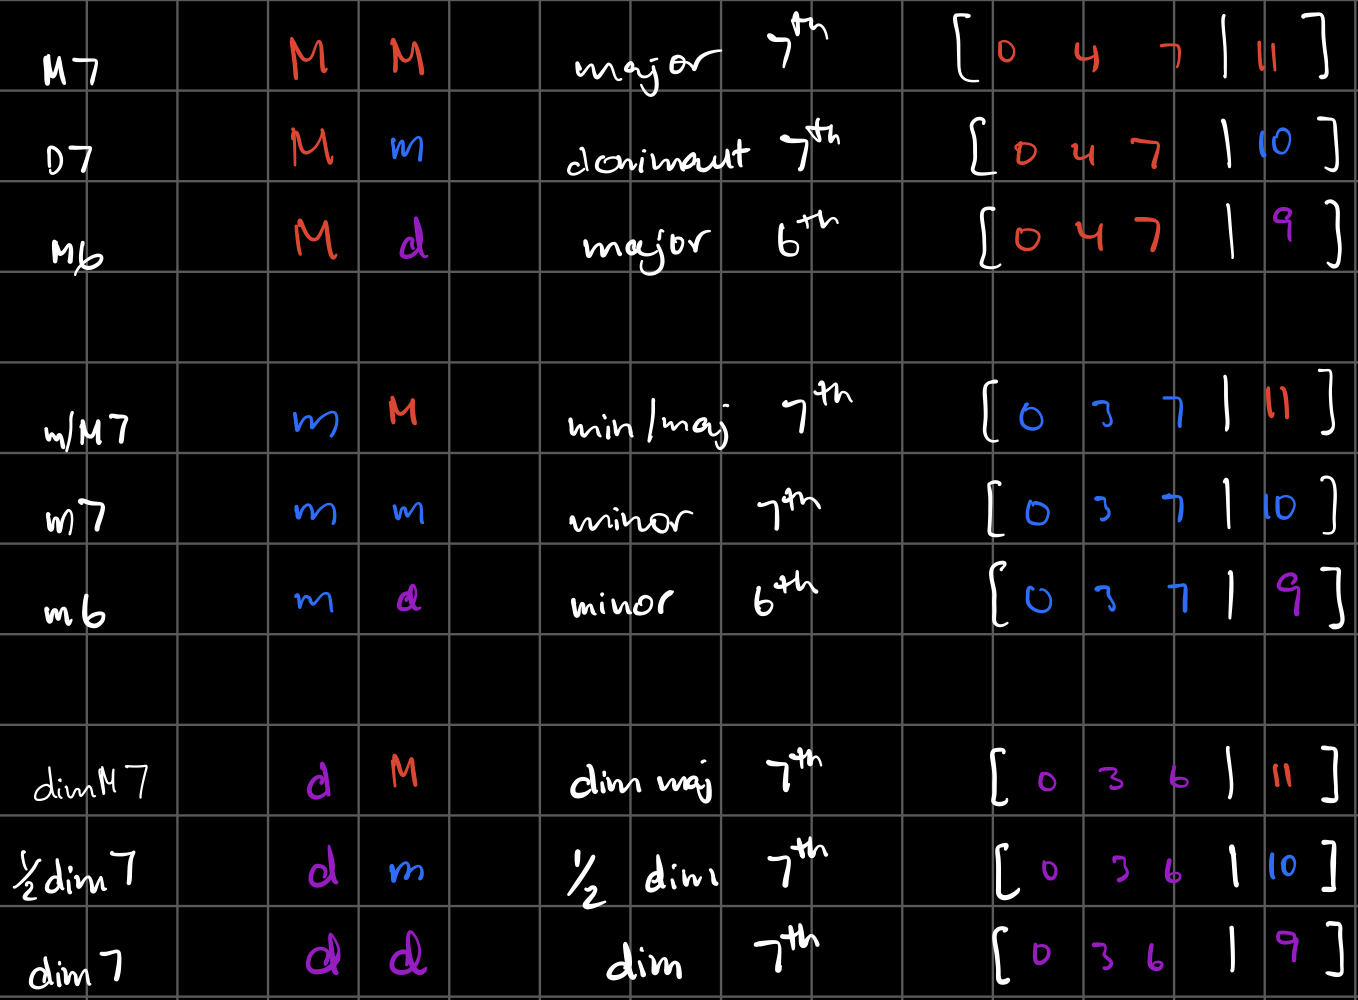 M7 M M major 7th [ 0 4 7 | 11 ]
D7 M m donimant 7th [ 0 4 7 | 10 ]
M6 M d major 6th [ 0 4 7 | 9 ]
m/M7 m M min/maj 7th [ 0 3 7 | 11 ]
m7 m m minor 7th [ 0 3 7 | 10 ]
m6 m d minor 6th [ 0 3 7 | 9 ]
dimM7 d M dim maj 7th [ 0 3 6 | 11 ]
½dim7 d m ½ dim 7th [ 0 3 6 | 10 ]
dim7 d d dim 7th [ 0 3 6 | 9 ]